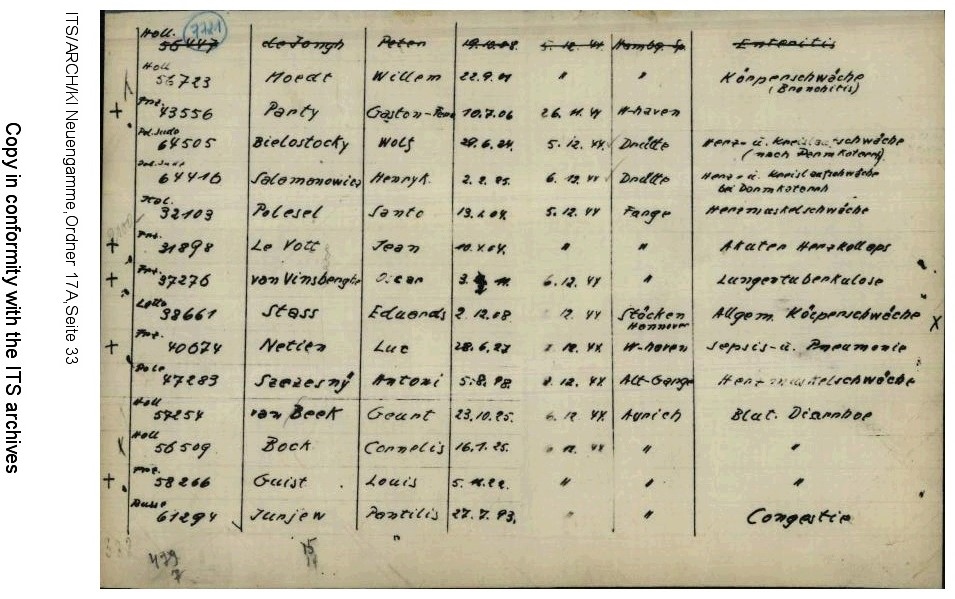 Copy in conformity with the ITS archives
ITS/ARCH/KI Neuengamme,Ordner 17A,Seite 33
7721
Holl. 56447 de Jongh Peter 19.10.08. 5. 12. 44 Hambg. Sp. Enteritis
Holl 56723 Moedt Willem 22.9.01 " " Körperschwäche
(Bronchitis)
+ Frz. 43556 Party Gaston 10.7.06 26. 11. 44 W-haven
Pol. Jude 64505 Bielostocky Wolf 29.6.24. 5. 12. 44 Drütte Herz- u. Kreislaufschwäche
(nach Darmkatarrh)
Pol. Jude 64410 Salomonowicz Henryk. 2. 2. 25. 6. 12. 44 Drütte Herz- u. Kreislaufschwäche
bei Darmkatarrh
Ital. 32103 Polesel Santo 5. 12. 44 Farge Herzmuskelschwäche
+ Frz. 31898 Le Vott Jean " " Akuter Herzkollaps
+ Frz. 37276 van Vinsberghe Oscar 6. 12. 44 " Lungentuberkulose
Lette 38661 Stass Eduards 2. 12.08 12. 44 Stöcken Allgem. Körperschwäche x
Hannover
+ Frz. 40674 Netien Luc 28.6.27 12. 44 W-haven Sepsis- u. Pneumonie
Pole 47283 Szczesny Antoni 12. 44 Alt-Garge Herzmuskelschwäche
Holl 57254 van Beek Geurt 23.10.25. 6. 12 44 Aurich Blut. Diarrhoe
Holl 56509 Bock Cornelis 16.1.25. 12. 44 " "
+ Frz. 58266 Guist Louis " " "
Russe 61294 Jurjew Pantilis 27.7.93. " " Congestie
439
7
15